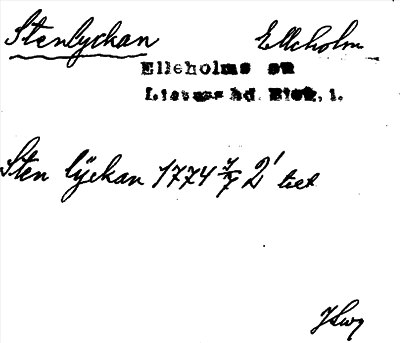 Stenlyckan Elleholm
Elleholms sn
Listers hd. Blek. l.
Sten lÿckan 1774 2' tiet